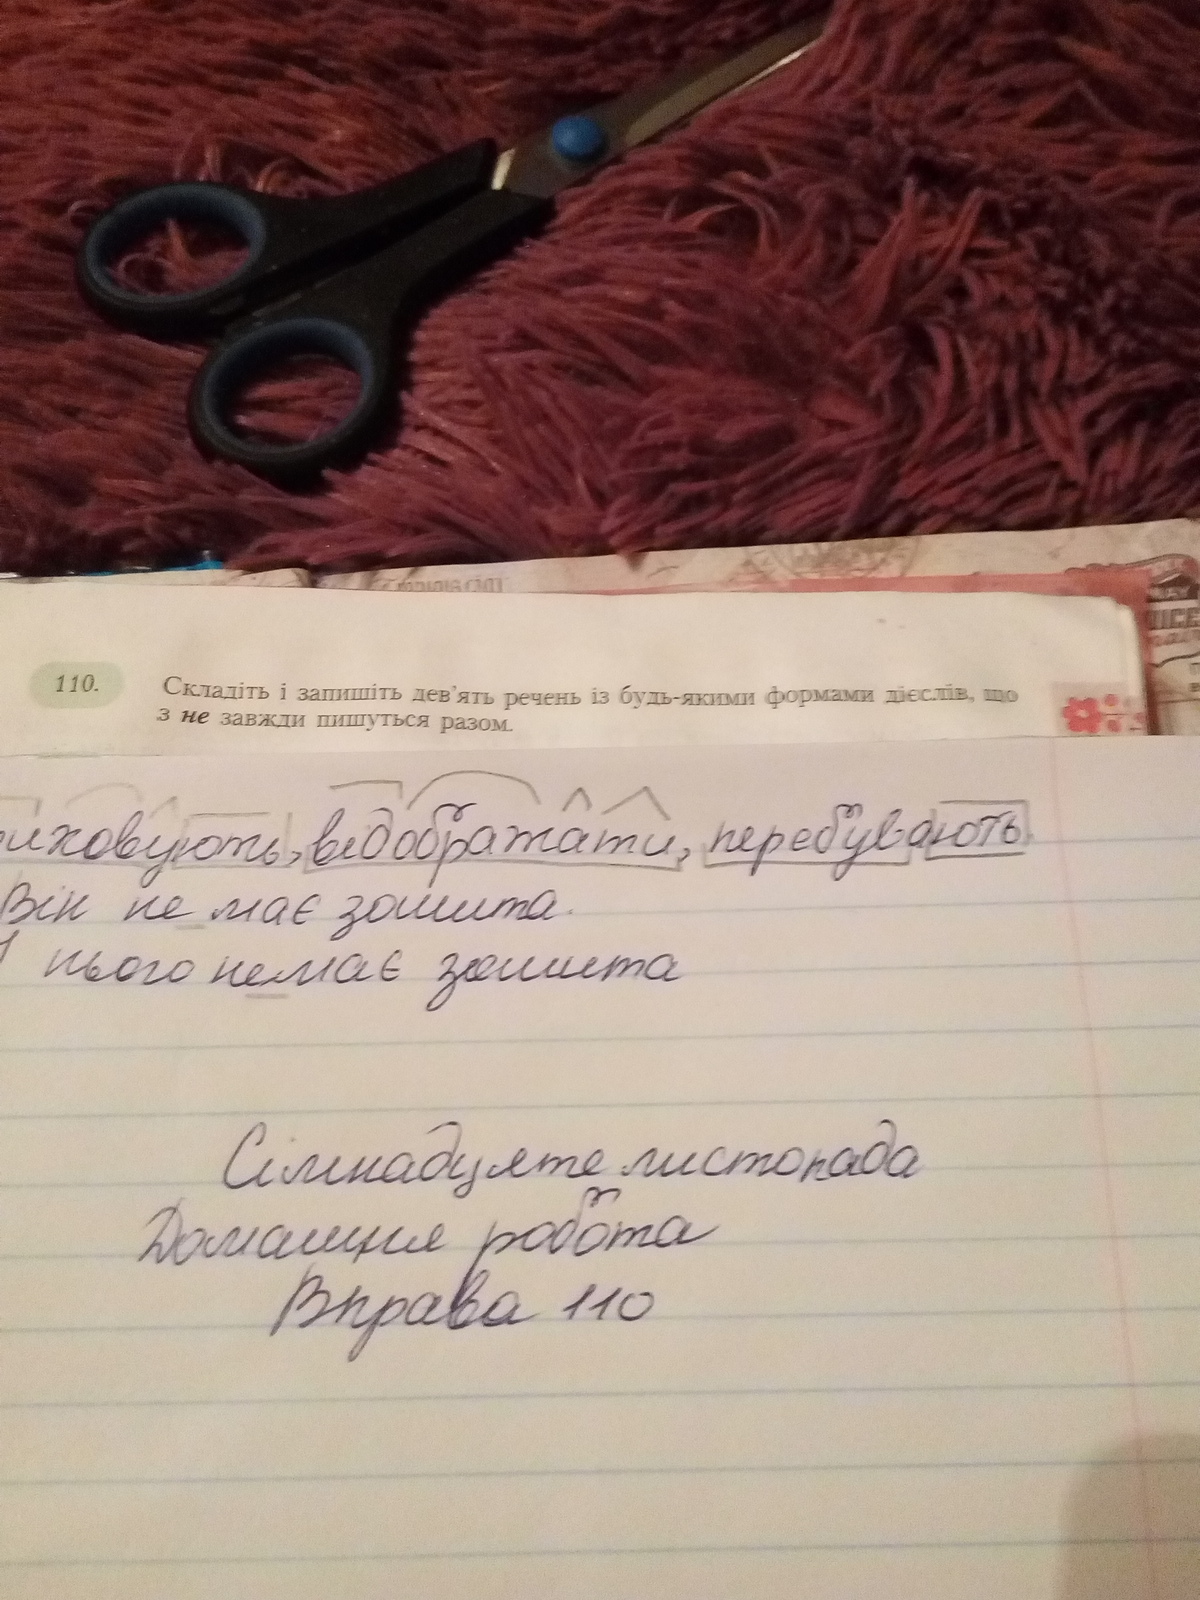 110.
Складіть і запишіть дев'ять речень із будь-якими формами дієслів, що
з не завжди пишуться разом.
відображати, перебувають
Він не має зошита.
нього немає зошита
Сімнадцяте листопада
Домашня робота
Вправа 110